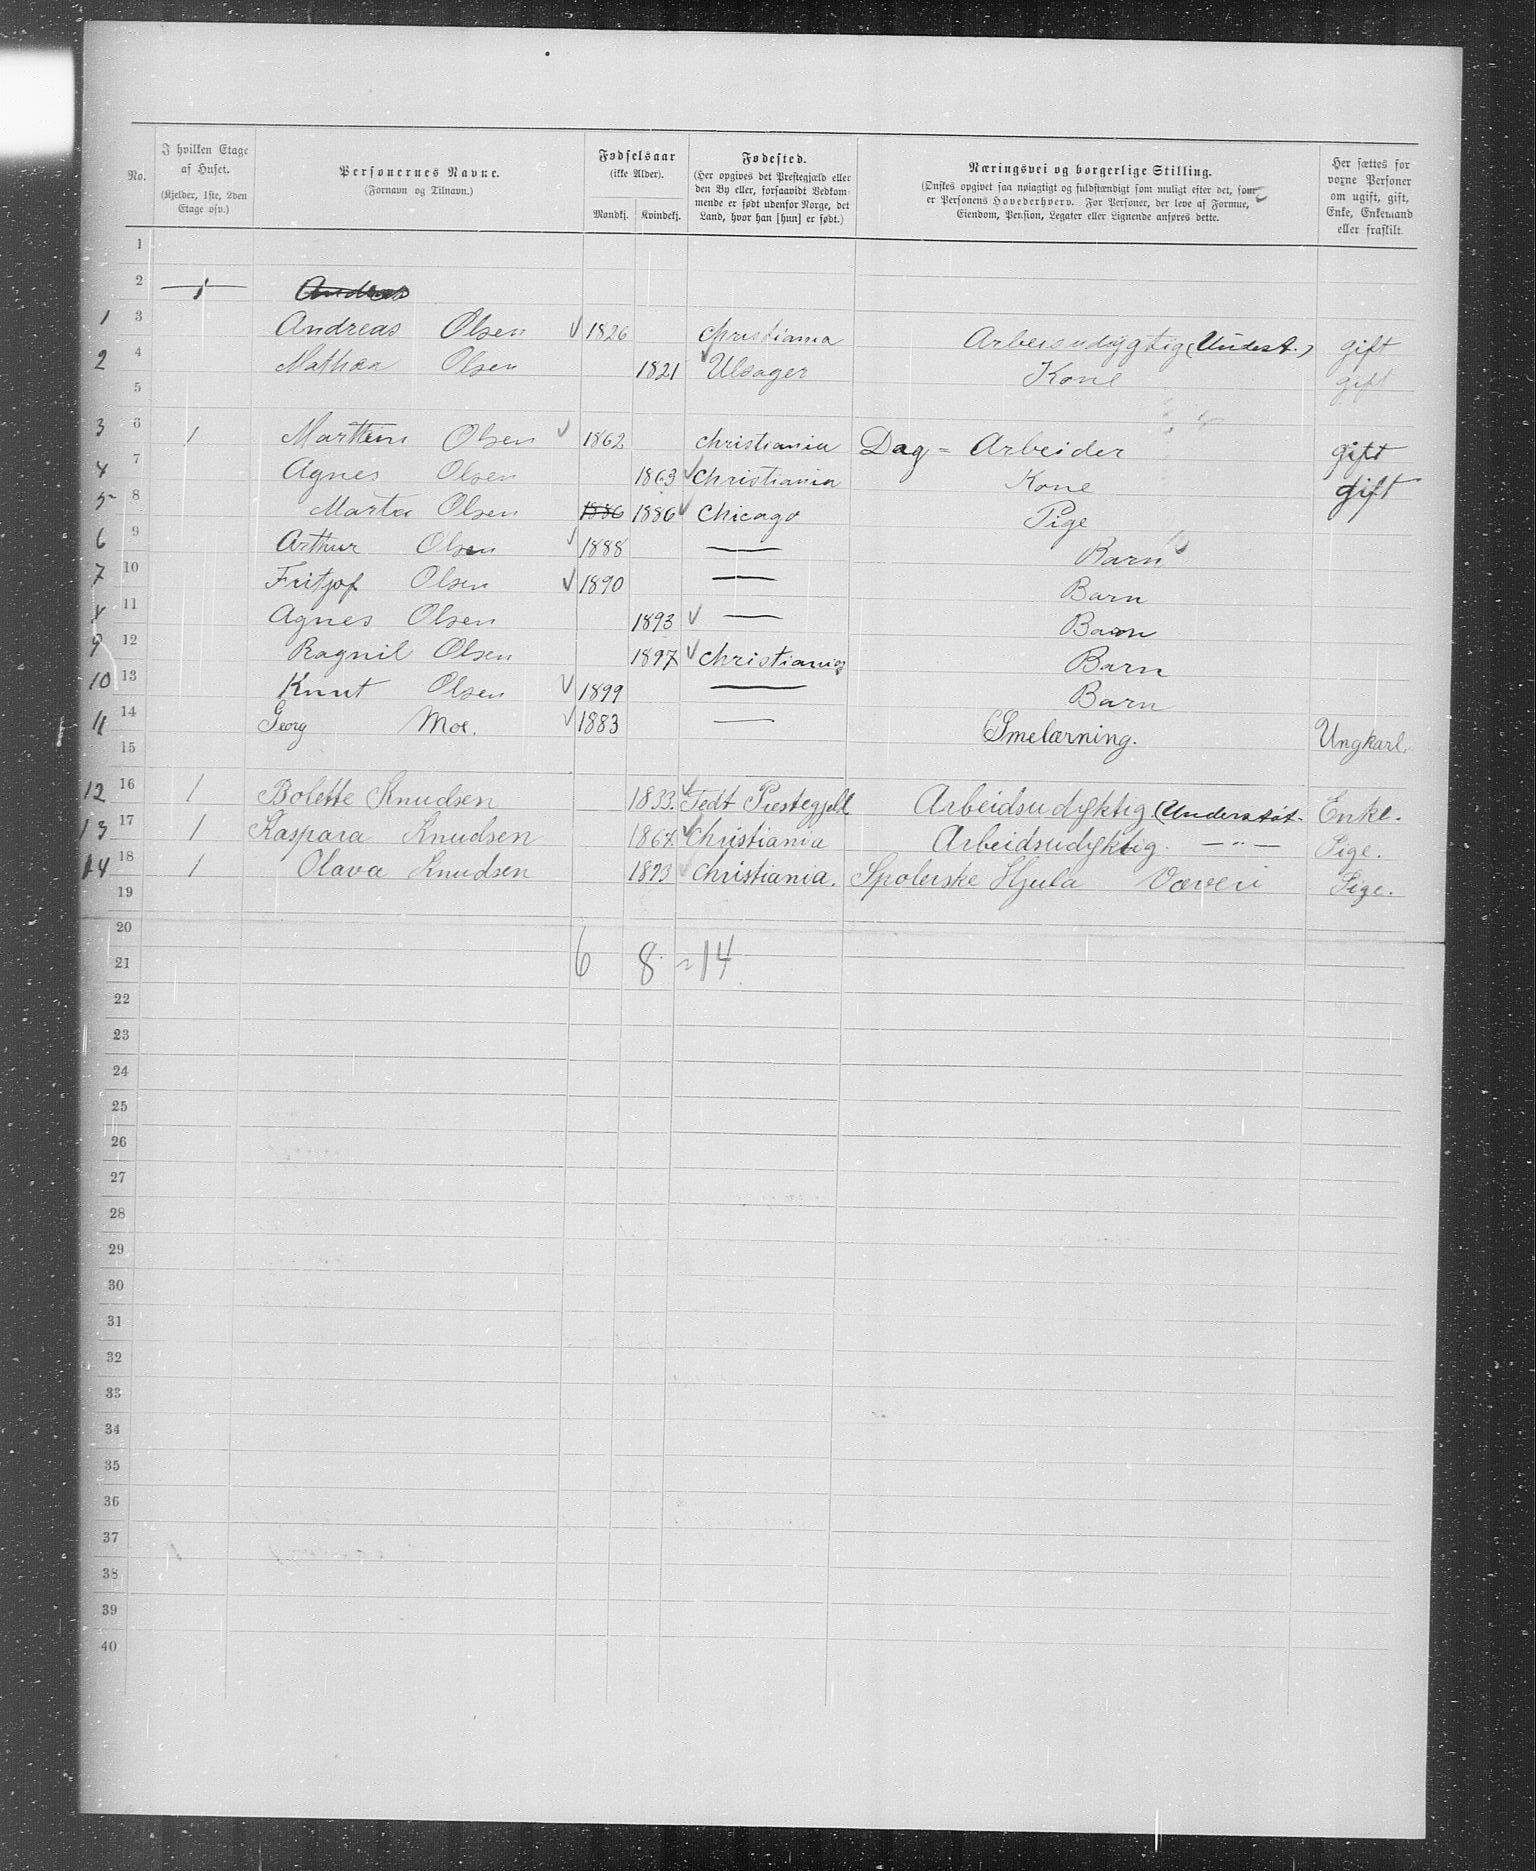 No.
I hvilken Etage af Huset.
(Kjelder, 1ste, 2den Etage osv.)
Personernes Navne.
(Fornavn og Tilnavn.)
Fødselsaar
(ikke Alder).
Mandkj. Kvindekj.
Fødested.
(Her opgives det Prestegjæld eller den By eller, forsaavidt Vedkommende er født udenfor Norge, det Land, hvor han [hun] er født.)
Næringsvei og borgerlige Stilling.
(Ønskes opgivet saa nøiagtigt og fuldstændigt som muligt efter det, som er Personens Hovederhverv. For Personer, der leve af Formue, Eiendom, Pension, Legater eller Lignende anføres dette.
Her sættes for vorne Personer om ugift, gift, Enke, Enkemand eller fraskilt.
1
2 1 Andreas
1 3 Andreas Olsen 1826 Christiania Arbeisudygtig (Underst.) gift
2 4 Mathea Olsen 1821 Ulsager Kone gift
5
3 6 1 Martten Olsen 1862 Christiania Dag = Arbeider gift
4 7 Agnes Olsen 1863 Christiania Kone gift
5 8 Marta Olsen 1886 1886 Chicago Pige
6 9 Arthur Olsen 1888 — Barn
7 10 Fritjof Olsen 1890 — Barn
8 11 Agnes Olsen 1893 — Barn
9 12 Ragnil Olsen 1897 Christiania Barn
10 13 Knut Olsen 1899 — Barn
11 14 Georg Moe. 1883 — Smelærning. Ungkarl.
15
12 16 1 Bolette Knudsen 1833. Tedt Prestegjeld Arbeidsudyktig (Understøt. Enke.
13 17 1 Kaspara Knudsen 1867. Christiania Arbeidsudyktig. — " — Pige.
14 18 1 Olava Knudsen 1873 Christiania. Spolerske Hjula Væveri Pige.
19
20
6 8 = 14
21
22
23
24
25
26
27
28
29
30
31
32
33
34
35
36
37
38
39
40